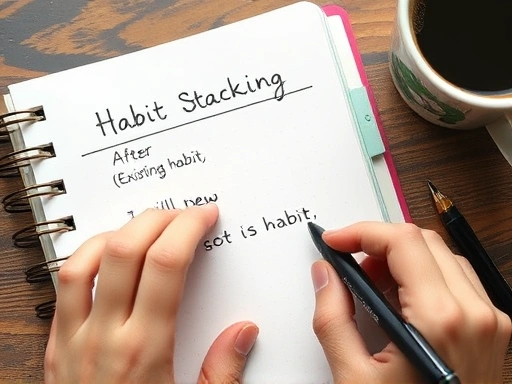 Habit Stacking
After
(Existing habit,
I will new
sot is habit,